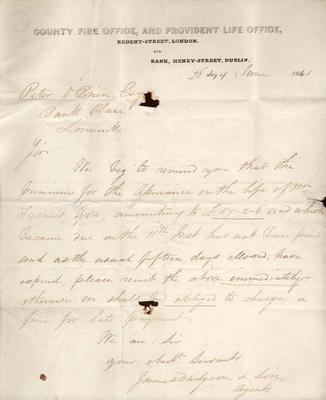 COUNTY FIRE OFFICE, AND PROVIDENT LIFE OFFICE,
REGENT-STREET, LONDON.
AND
BANK, HENRY-STREET, DUBLIN.
26 day of June 1841
Peter O'Brien Esq
Bank Place
Limerick
Sir
We beg to remind you that the
Premium for the Assurance on the life of Mr
Francis Gore, amounting to £17-2-6 and which
became due on the 11th Inst has not been paid
and as the usual fifteen days allowed, have
expired, please remit the above immediately
otherwise we shall be obliged to charge a
fine for late payment
We are, Sir
your obedt Servants
James Dudgeon & Son
Agents